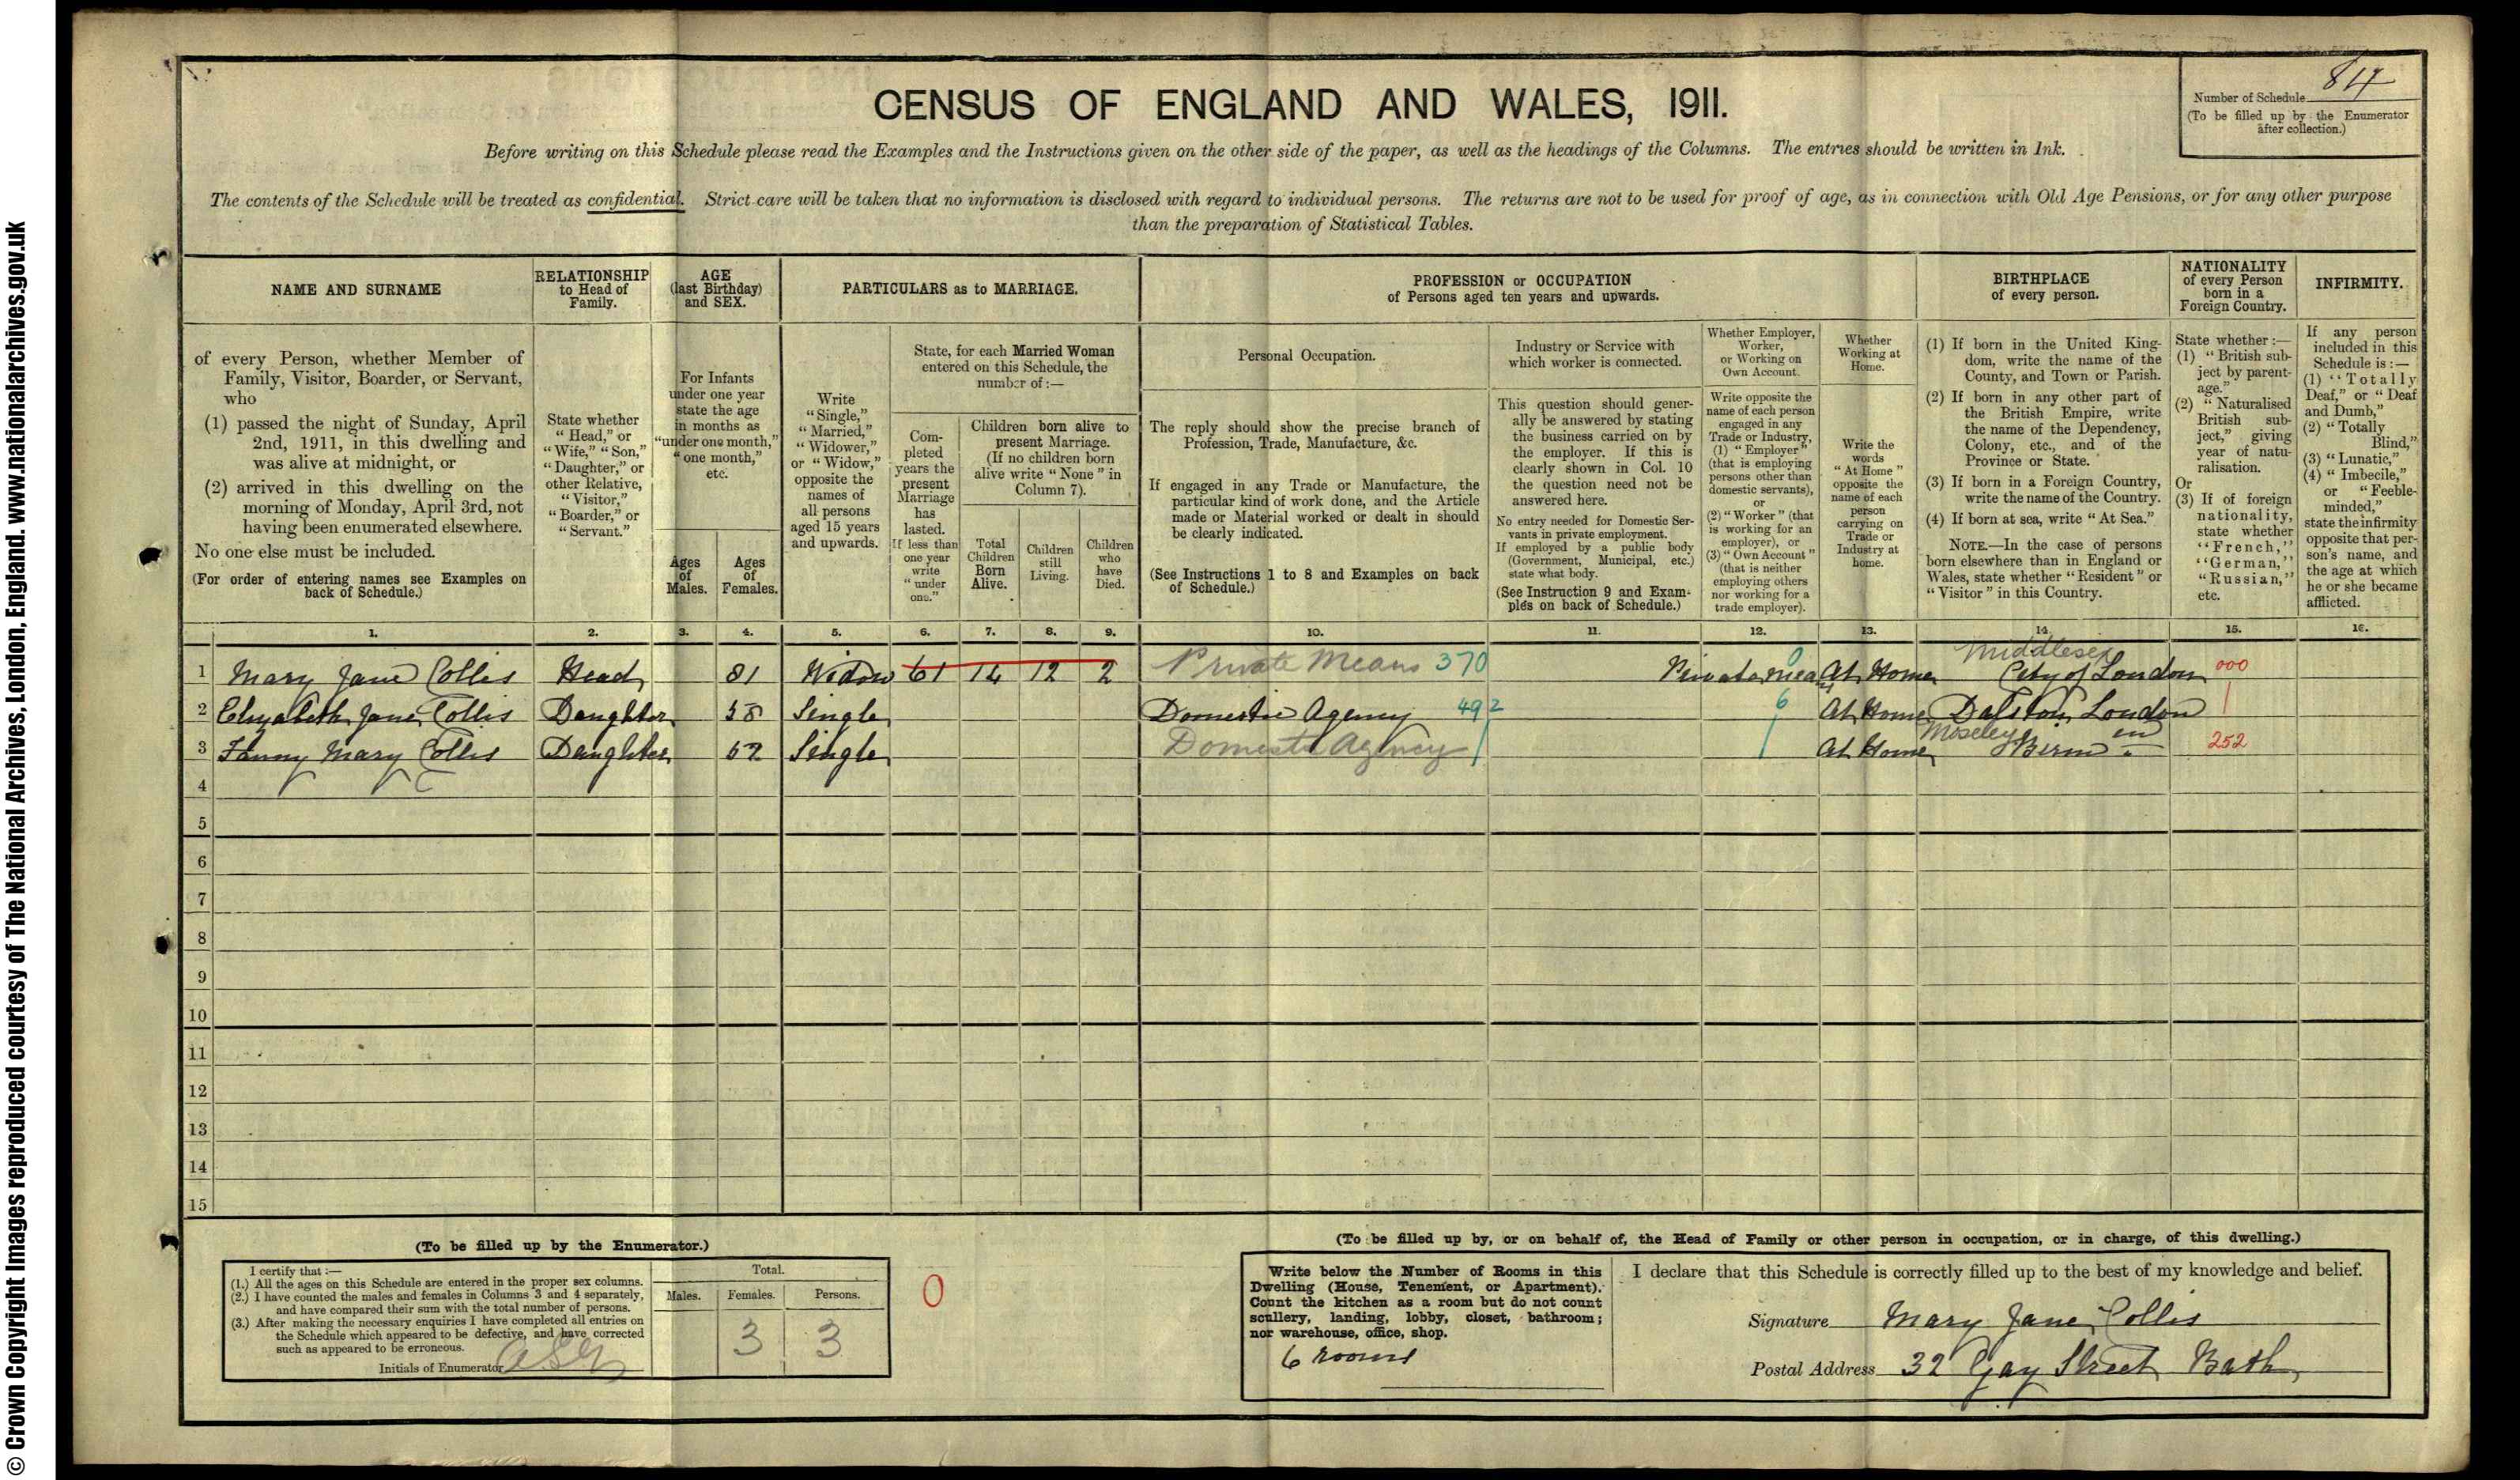 © Crown Copyright Images reproduced courtesy of The National Archives, London, England. www.nationalarchives.gov.uk
CENSUS OF ENGLAND AND WALES, 1911.
Number of Schedule
(To be filled up by the Enumerator
after collection.)
Before writing on this Schedule please read the Examples and the Instructions given on the other side of the paper, as well as the headings of the Columns. The entries should be written in Ink.
The contents of the Schedule will be treated as confidential. Strict care will be taken that no information is disclosed with regard to individual persons. The returns are not to be used for proof of age, as in connection with Old Age Pensions, or for any other purpose
than the preparation of Statistical Tables.
NAME AND SURNAME
of every Person, whether Member of
Family, Visitor, Boarder, or Servant,
who
(1) passed the night of Sunday, April
2nd, 1911, in this dwelling and
was alive at midnight, or
(2) arrived in this dwelling on the
morning of Monday, April 3rd, not
having been enumerated elsewhere.
No one else must be included.
(For order of entering names see Examples on
back of Schedule.)
RELATIONSHIP
to Head of
Family.
State whether
"Head," or
"Wife," "Son,"
"Daughter," or
other Relative,
"Visitor,"
"Boarder," or
"Servant."
AGE
(last Birthday)
and SEX.
For Infants
under one year
state the age
in months as
"under one month,"
"one month,"
etc.
Ages
of
Males.
Ages
of
Females.
PARTICULARS as to MARRIAGE.
Write
"Single,"
"Married,"
"Widower,"
or "Widow,"
opposite the
names of
all persons
aged 15 years
and upwards.
State, for each Married Woman
entered on this Schedule, the
number of:—
Com-
pleted
years the
present
Marriage
has
lasted.
If less than
one year
write
"under
one."
Children born alive to
present Marriage.
(If no children born
alive write "None" in
Column 7).
Total
Children
Born
Alive.
Children
still
Living.
Children
who
have
Died.
PROFESSION or OCCUPATION
of Persons aged ten years and upwards.
Personal Occupation.
The reply should show the precise branch of
Profession, Trade, Manufacture, &c.
If engaged in any Trade or Manufacture, the
particular kind of work done, and the Article
made or Material worked or dealt in should
be clearly indicated.
(See Instructions 1 to 8 and Examples on back
of Schedule.)
Industry or Service with
which worker is connected.
This question should gener-
ally be answered by stating
the business carried on by
the employer. If this is
clearly shown in Col. 10
the question need not be
answered here.
No entry needed for Domestic Ser-
vants in private employment.
If employed by a public body
(Government, Municipal, etc.)
state what body.
(See Instruction 9 and Exam-
ples on back of Schedule.)
Whether Employer,
Worker,
or Working on
Own Account.
Write opposite the
name of each person
engaged in any
Trade or Industry,
(1) "Employer"
(that is employing
persons other than
domestic servants),
or
(2) "Worker" (that
is working for an
employer), or
(3) "Own Account"
(that is neither
employing others
nor working for a
trade employer).
Whether
Working at
Home.
Write the
words
"At Home"
opposite the
name of each
person
carrying on
Trade or
Industry at
home.
BIRTHPLACE
of every person.
(1) If born in the United King-
dom, write the name of the
County, and Town or Parish.
(2) If born in any other part of
the British Empire, write
the name of the Dependency,
Colony, etc., and of the
Province or State.
(3) If born in a Foreign Country,
write the name of the Country.
(4) If born at sea, write "At Sea."
NOTE.—In the case of persons
born elsewhere than in England or
Wales, state whether "Resident" or
"Visitor" in this Country.
NATIONALITY
of every Person
born in a
Foreign Country.
State whether:—
(1) "British sub-
ject by parent-
age."
(2) "Naturalised
British sub-
ject," giving
year of natu-
ralisation.
Or
(3) If of foreign
nationality,
state whether
"French,"
"German,"
"Russian,"
etc.
INFIRMITY.
If any person
included in this
Schedule is:—
(1) "Totally
Deaf," or "Deaf
and Dumb,"
(2) "Totally
Blind,"
(3) "Lunatic,"
(4) "Imbecile,"
or "Feeble-
minded,"
state the infirmity
opposite that per-
son's name, and
the age at which
he or she became
afflicted.
1. 2. 3. 4. 5. 6. 7. 8. 9. 10. 11. 12. 13. 14. 15. 16.
Middlesex
1 Mary Jane Collis Head 81 Widow 61 14 12 2 Private Means 370 Private mean 0 At Home City of London 000
2 Elizabeth Jane Collis Daughter 58 Single Domestic Agency 492 6 At Home Dalston London
Moseley
3 Fanny Mary Collis Daughter 52 Single Domestic Agency At Home Birm 252
4
5
6
7
8
9
10
11
12
13
14
15
(To be filled up by the Enumerator.)
I certify that:—
(1.) All the ages on this Schedule are entered in the proper sex columns.
(2.) I have counted the males and females in Columns 3 and 4 separately,
and have compared their sum with the total number of persons.
(3.) After making the necessary enquiries I have completed all entries on
the Schedule which appeared to be defective, and have corrected
such as appeared to be erroneous.
Initials of Enumerator
Total.
Males. Females. Persons.
3 3
0
(To be filled up by, or on behalf of, the Head of Family or other person in occupation, or in charge, of this dwelling.)
Write below the Number of Rooms in this
Dwelling (House, Tenement, or Apartment).
Count the kitchen as a room but do not count
scullery, landing, lobby, closet, bathroom;
nor warehouse, office, shop.
6 rooms
I declare that this Schedule is correctly filled up to the best of my knowledge and belief.
Signature Mary Jane Collis
Postal Address 32 Gay Street Bath